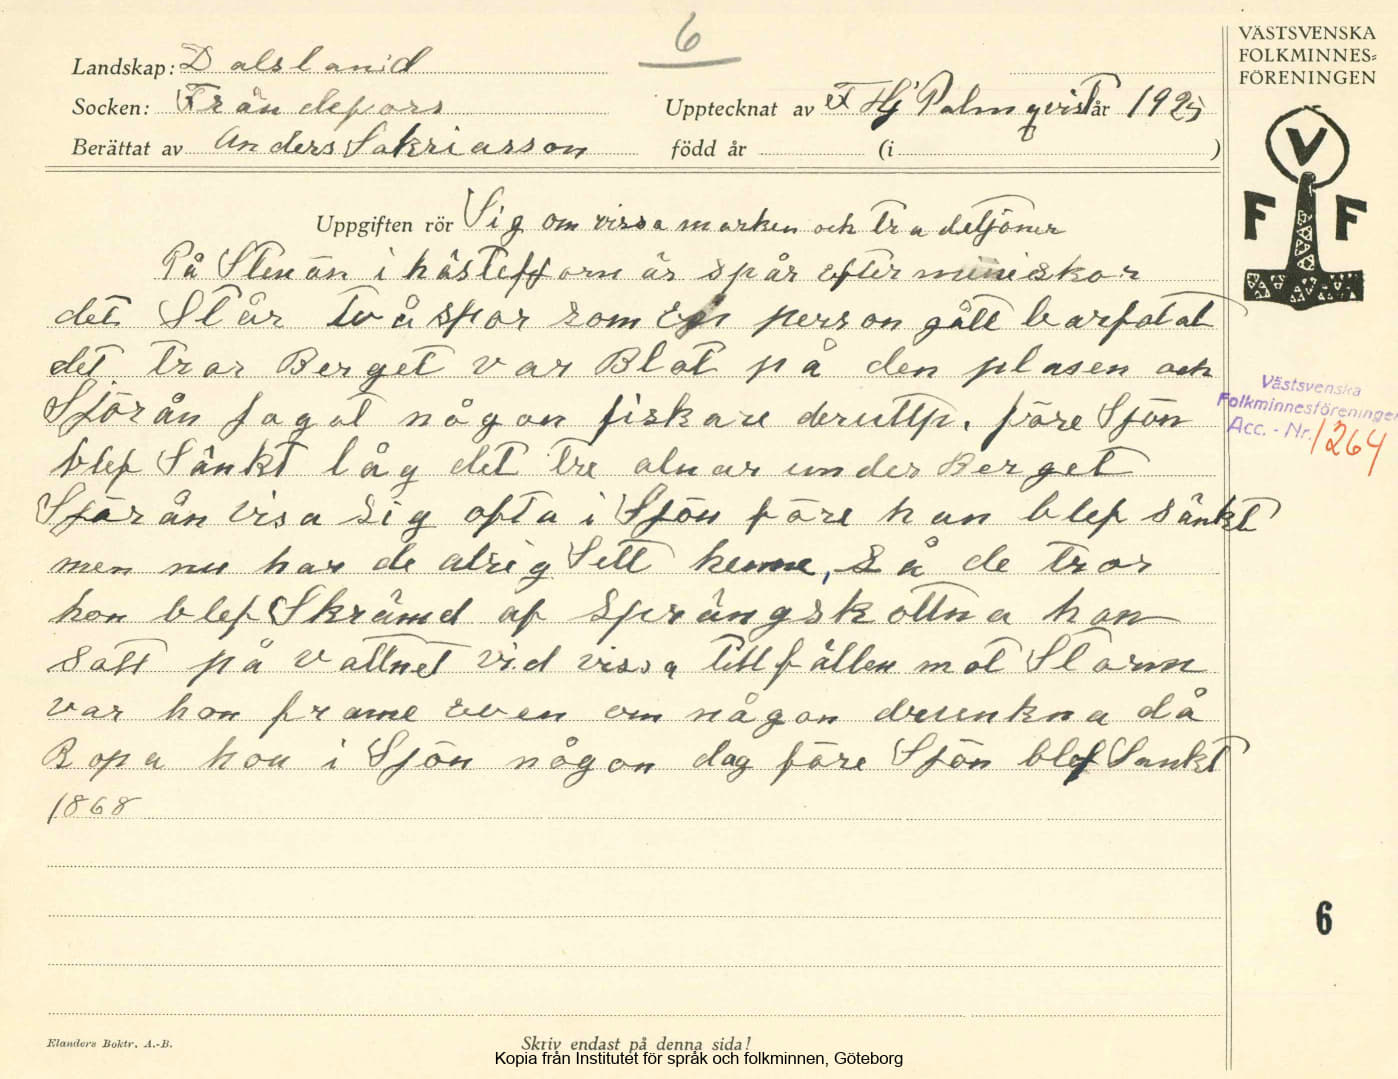 6
VÄSTSVENSKA
FOLKMINNES=
FÖRENINGEN
Landskap: Dalsland
Socken: Frändefors
Upptecknat av F Hj Palmqvist år 1925
Berättat av Anders Sakriasson
född år (i )
V
F F
Uppgiften rör Sig om vissa marken och tradetjoner
På Stenän i hästefjorn är spår efter meniskor
det Står två spor som en person gått barfotat
det tror Berget var Blot på den plasen och
Sjörån fagot någon fiskare deruttp. före Sjön
blef Sänkt låg det tre alnar under Berget
Sjörån visa sig ofta i Sjön före han blef sänkt
men nu har de alrig Sett henne, så de tror
hon blef Skrämd af sprängskottna hon
satt på vattnet vid vissa tillfällen mot Storm
var hon frame även om någon drunkna då
Ropa hon i Sjön någon dag före Sjön blef Sankt
1868
Västsvenska
Folkminnesföreningen
Acc. - Nr. 1264
6
Elanders Boktr. A.-B.
Skriv endast på denna sida!
Kopia från Institutet för språk och folkminnen, Göteborg